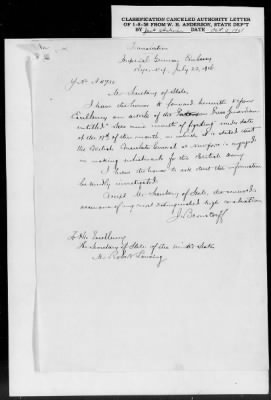 CLASSIFICATION CANCELED AUTHORITY LETTER
OF 1-8-58 FROM W. H. ANDERSON, STATE DEP'T
BY DATE
Translation
Imperial German Embassy
July 22, 1916
Mr. Secretary of State,
I have the honor to forward herewith to your
Excellency an article of the Providence Journal
entitled under date
of the of this month in which it is stated that
the British Consulate General at is engaged
in making enlistments for the British Army.
I have the honor to ask that the information
be kindly investigated.
Accept, Mr. Secretary of State, the renewed
assurance of my most distinguished high consideration
J. Bernstorff
To His Excellency
the Secretary of State of the United States
Mr. Robert Lansing